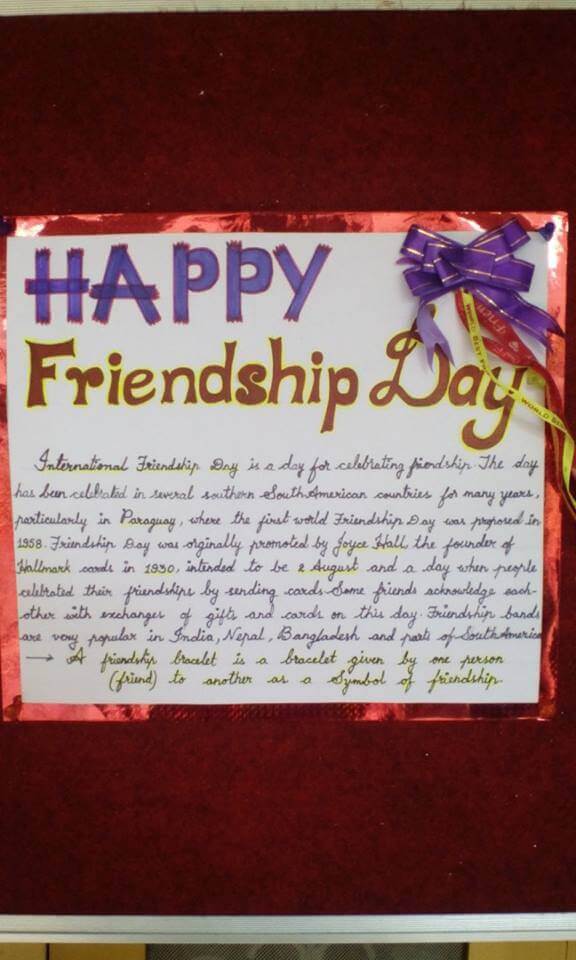 HAPPY
Friendship Day
International Friendship Day is a day for celebrating friendship. The day
has been celebrated in several southern South American countries for many years,
particularly in Paraguay, where the first world Friendship Day was proposed in
1958. Friendship Day was orginally promoted by Joyce Hall, the founder of
Hallmark cards in 1930, intended to be 2 August and a day when people
celebrated their friendships by sending cards. Some friends acknowledge each-
other with exchanges of gifts and cards on this day. Friendship bands
are very popular in India, Nepal, Bangladesh and parts of South America
→ A friendship bracelet is a bracelet given by one person
(friend) to another as a Symbol of friendship.
WORLD BEST
WORLD